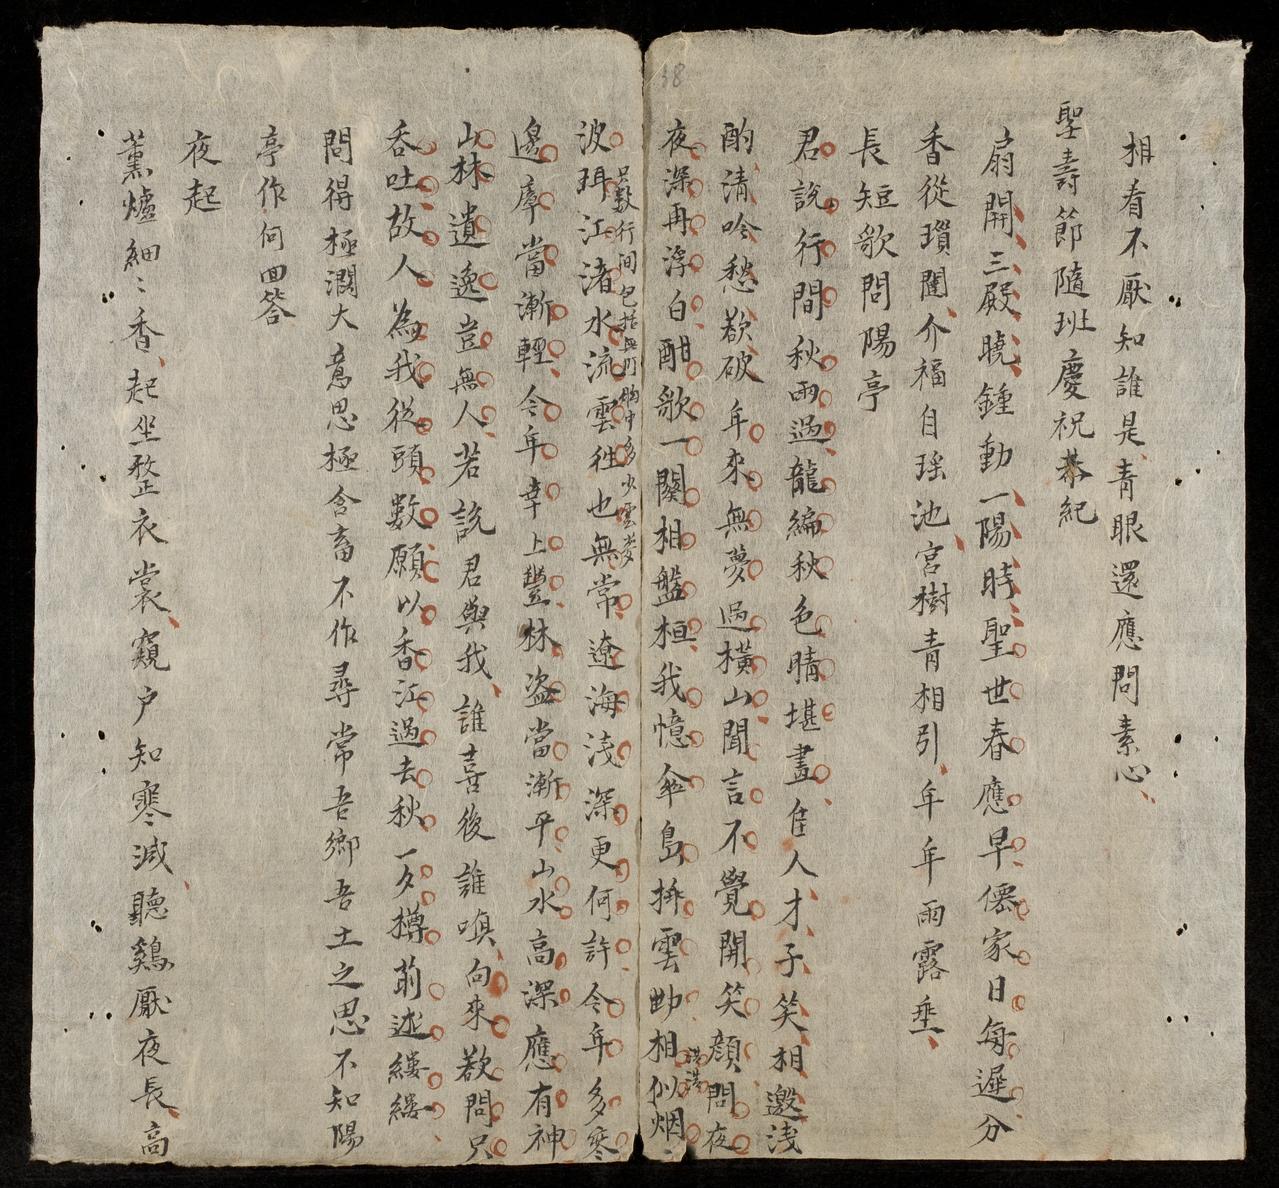 相看不厭知誰是青眼還應問素心
聖壽節隨班慶祝恭紀
扇開三殿曉鍾動一陽時聖世春應早僊家日每遲分
香從瑣闥介福自瑤池宮樹青相引年年雨露垂
長短歌問陽亭
君說行間秋雨過龍編秋色晴堪畫佳人才子笑相邀淺
酌清吟愁欲破年來無夢過橫山聞言不覺開笑顏問夜
夜深再浮白酣歌一闋相盤桓我憶傘島拚雲岰相似烟
波珥江渚水流雲徃也無常遼海淺深更何許今年多寒
只數行间包括無所胸中多少雲夢
邊庠當漸輕今年幸上豐林盜當漸平山水高深應有神
山林遺逸豈無人若說君與我誰喜後誰嗔向來歡問只
吞吐故人為我從頭數願以香江過去秋一夕樽前述縷縷
問得極濶大意思極含畜不作尋常吾鄉吾土之思不知陽
亭作何回答
夜起
薰爐細〻香起坐整衣裳窺户知寒減聽鷄厭夜長高